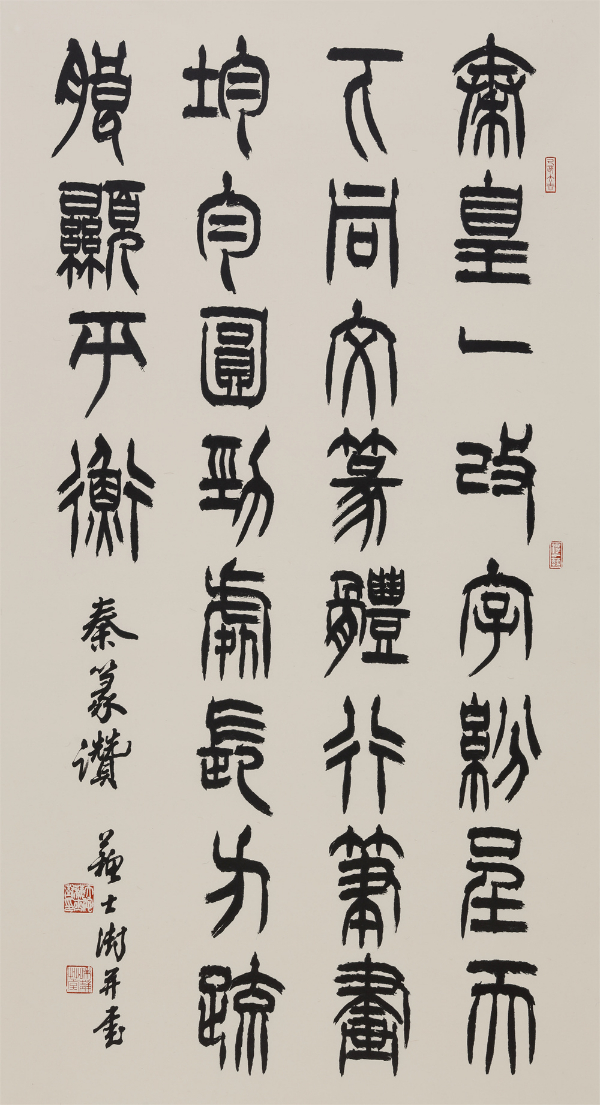 秦皇一改字紛呈天
下同文篆體行筆畫
均勻圓勁處長方疏
朗顯平衡
秦篆讚 蘇士澍并書